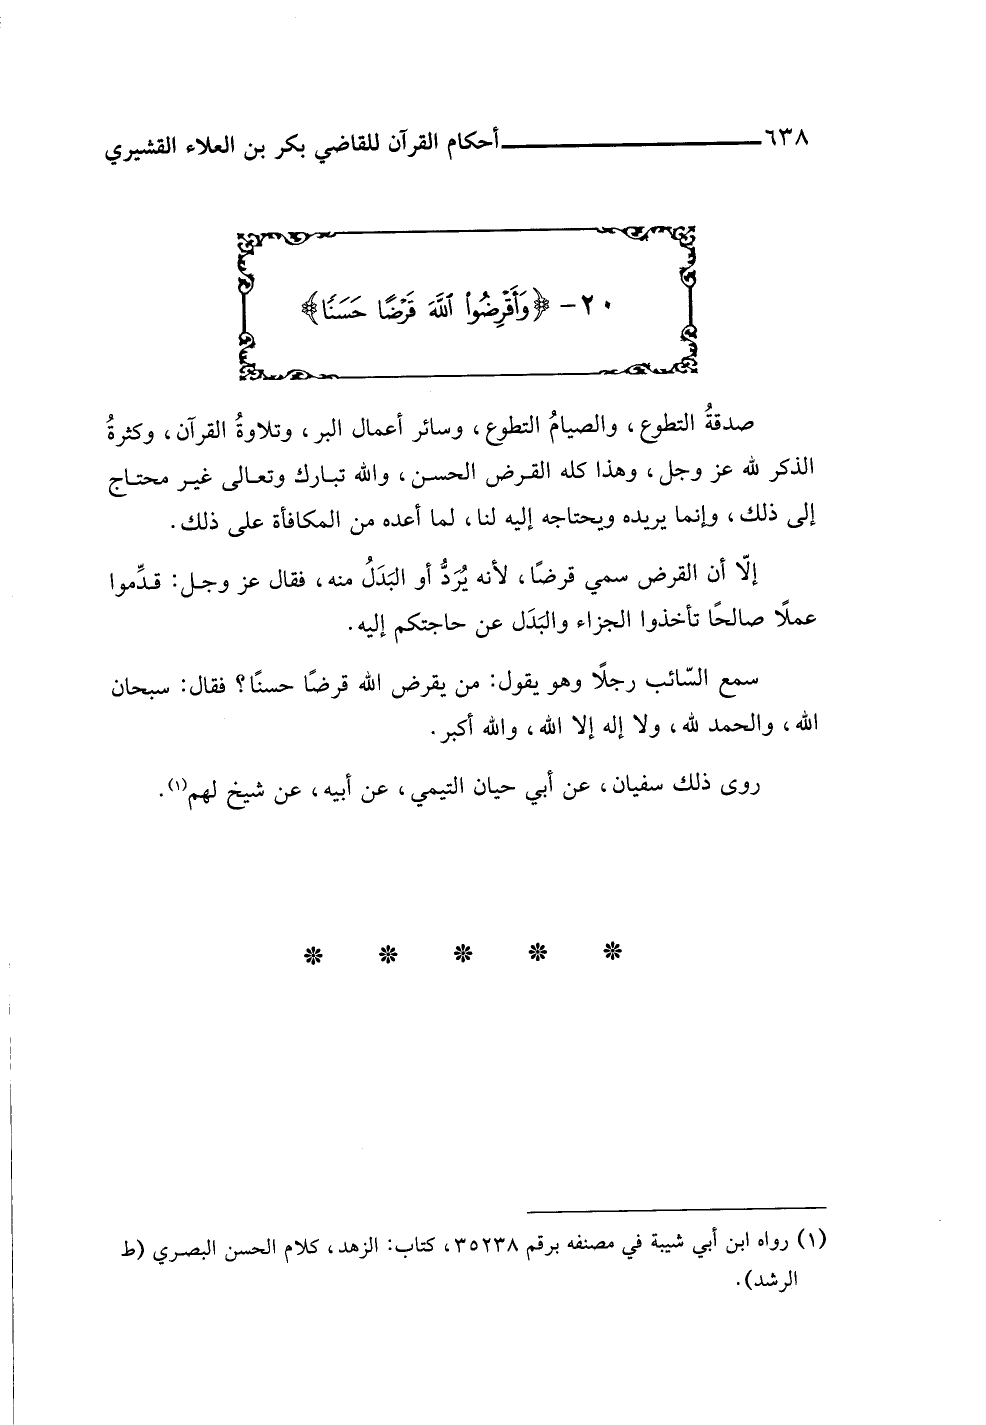 ٦٣٨ أحكام القرآن للقاضي بكر بن العلاء القشيري
٢٠ - ﴿وَأَقْرِضُوا۟ ٱللَّهَ قَرْضًا حَسَنًا﴾
صدقةُ التطوع، والصيامُ التطوع، وسائر أعمال البر، وتلاوةُ القرآن، وكثرةُ
الذكر لله عز وجل، وهذا كله القرض الحسن، والله تبارك وتعالى غير محتاج
إلى ذلك، وإنما يريده ويحتاجه إليه لنا، لما أعده من المكافأة على ذلك.
إلّا أن القرض سمي قرضًا، لأنه يُرَدُّ أو البَدَلُ منه، فقال عز وجل: قدِّموا
عملًا صالحًا تأخذوا الجزاء والبَدَل عن حاجتكم إليه.
سمع السّائب رجلًا وهو يقول: من يقرض الله قرضًا حسنًا؟ فقال: سبحان
الله، والحمد لله، ولا إله إلا الله، والله أكبر.
روى ذلك سفيان، عن أبي حيان التيمي، عن أبيه، عن شيخ لهم(١).
* * * * *
(١) رواه ابن أبي شيبة في مصنفه برقم ٣٥٢٣٨، كتاب: الزهد، كلام الحسن البصري (ط
الرشد).